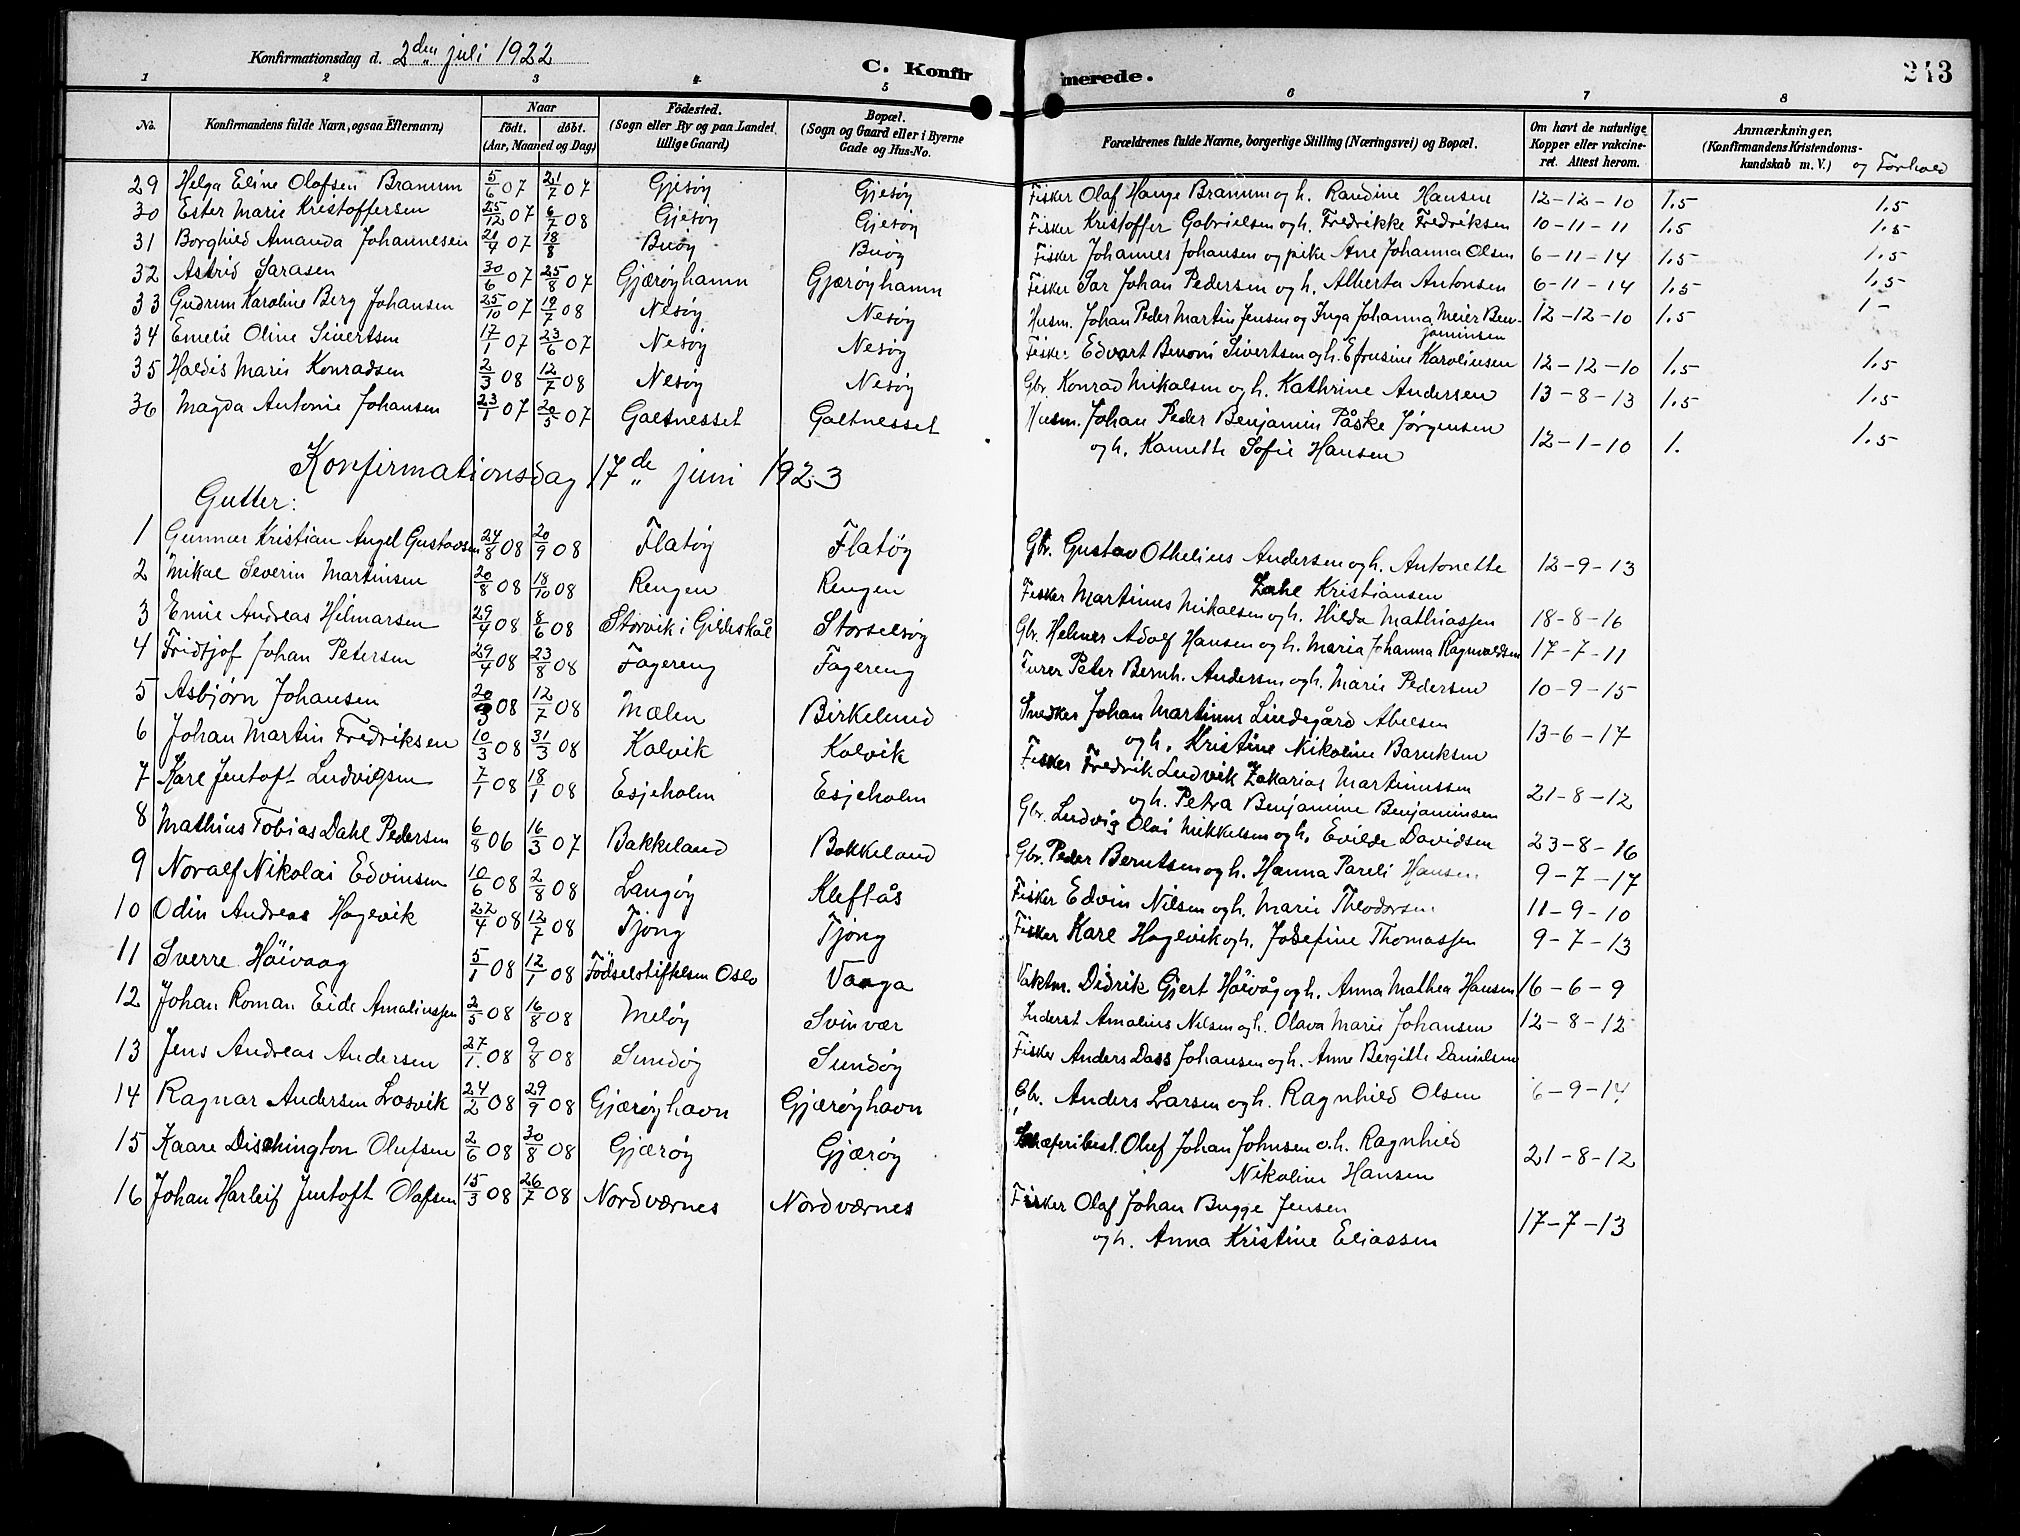 Konfirmationsdag d. 2den juli 1922
C. Konfirmerede.
243
1 2 3 4 5 6 7 8
No. Konfirmandens fulde Navn, ogsaa Efternavn) Naar født. døbt. (Aar, Maaned og Dag) Födested. (Sogn eller By og paa Landet tillige Gaard) Bopæl. (Sogn og Gaard eller i Byerne Gade og Hus-No. Forældrenes fulde Navne, borgerlige Stilling (Næringsvei) og Bopæl. Om havt de naturlige Kopper eller vakcineret. Attest herom. Anmærkninger. (Konfirmandens Kristendomskundskab m. V.) og Forhold
29 Helga Eline Olafsen Bramum 5/6 07 21/7 07 Gjesøy Gjesøy Fisker Olaf Hange Bramum og h. Randine Hansen 12-12-10 1.5 1.5
30 Ester Marie Kristoffersen 25/12 07 6/7 08 Gjesøy Gjesøy Fisker Kristoffer Gabrielsen og h. Fredrikke Fredriksen 10-11-11 1.5 1.5
31 Borghild Amanda Johannesen 21/4 07 18/8 Buøy Buøy Fisker Johannes Johansen og pike Ane Johanna Olsen 6-11-14 1.5 1.5
32 Astrid Sarasen 30/6 07 25/8 07 Gjærøyhamn Gjærøyhamn Fisker Sar Johan Pedersen og h. Alberta Antonsen 6-11-14 1.5 1.5
33 Gudrun Karoline Berg Johansen 25/10 07 19/7 08 Nesøy Nesøy Husm. Johan Peder Martin Jensen og Inga Johanna Meier Benjaminsen 12-12-10 1.5 1-
34 Emelie Oline Sivertsen 17/1 07 23/6 07 Nesøy Nesøy Fisker Edvart Benoni Sivertsen og h. Efrusine Karolinsen 12-12-10 1.5 1.5
35 Haldis Marie Konradsen 2/3 08 12/7 08 Nesøy Nesøy Gbr. Konrad Mikalsen og h. Kathrine Andersen 13-8-13 1.5 1.5
36 Magda Antonie Johansen 23/1 07 20/5 07 Galtnesset Galtnesset Husm. Johan Peder Benjamin Påske Jørgensen
og h. Kanutte Sofie Hansen 12-1-10 1. 1.5
Konfirmationsdag 17de juni 1923
Gutter:
1 Gunnar Kristian Angel Gustavsen 24/8 08 20/9 08 Flatøy Flatøy Gbr. Gustav Othelius Andersen og h. Antonette
Zahl Kristiansen 12-9-13
2 Mikal Severin Martinsen 20/8 08 18/10 08 Rengen Rengen Fisker Martinus Mikalsen og h. Hilda Mathiassen 18-8-16
3 Enie Andreas Hilmarsen 29/4 08 8/6 08 Storvik i Gildeskål Storselsøy Gbr. Helmer Adolf Hansen og h. Maria Johanna Ragnvaldsen 17-7-11
4 Fridtjof Johan Petersen 29/4 08 23/8 08 Fagereng Fagereng Furer Peter Bernh. Andersen og h. Marie Pedersen 10-9-15
5 Asbjørn Johansen 20/3 08 12/7 08 Mælen Birkelund Snedker Johan Martinus Lindegård Abelsen
og h. Kristine Nikoline Baruksen 13-6-17
6 Johan Martin Fredriksen 10/3 08 31/3 08 Kalvik Kalvik Fisker Fredrik Ludvik Zakarias Martinussen
og h. Petra Benjamine Benjaminsen 21-8-12
7 Karl Jentoft Ludvigsen 7/1 08 18/1 08 Esjeholm Esjeholm Gbr. Ludvig Olai Mikkelsen og h. Evilde Davidsen 23-8-16
8 Mathius Tobias Dahl Pedersen 6/8 06 16/3 07 Bakkeland Bakkeland Gbr. Peder Berntsen og h. Hanna Pareli Hansen 9-7-17
9 Noralf Nikolai Edvinsen 10/6 08 2/8 08 Langøy Kleftås Fisker Edvin Nilsen og h. Marie Theodorsen 11-9-10
10 Odin Andreas Hagevik 22/4 08 12/7 08 Tjong Tjong Fisker Karl Hagevik og h. Josefine Thomassen 9-7-13
11 Sverre Höivaag 5/1 08 12/1 08 Födselsstiftelsen Oslo Vaaga Vaktm. Didrik Gjert Höivåg og h. Anna Mathea Hansen 16-6-9
12 Johan Roman Eide Amaliussen 2/5 08 16/8 08 Meløy Svinvær Inderst Amalius Nilsen og h. Olava Marie Johansen 12-8-12
13 Jens Andreas Andersen 27/1. 08 9/8 08 Sundøy Sundøy Fisker Anders Dass Johansen og h. Anne Bergitte Danielsen
14 Ragnar Andersen Losvik 24/2 08 29/9 08 Gjærøyhavn Gjærøyhavn Gbr. Anders Larsen og h. Ragnhild Olsen 6-9-14
15 Kaare Dischington Olufsen 2/6 08 30/8 08 Gjærøy Gjærøy Oluf Johan Johnsen o.h. Ragnhild
Nikoline Hansen 21-8-12
16 Johan Harleif Jentoft Olafsen 15/3 08 26/7 08 Nordværnes Nordværnes Fisker Olaf Johan Bugge Jensen
og h. Anna Kristine Eliassen 17-7-13